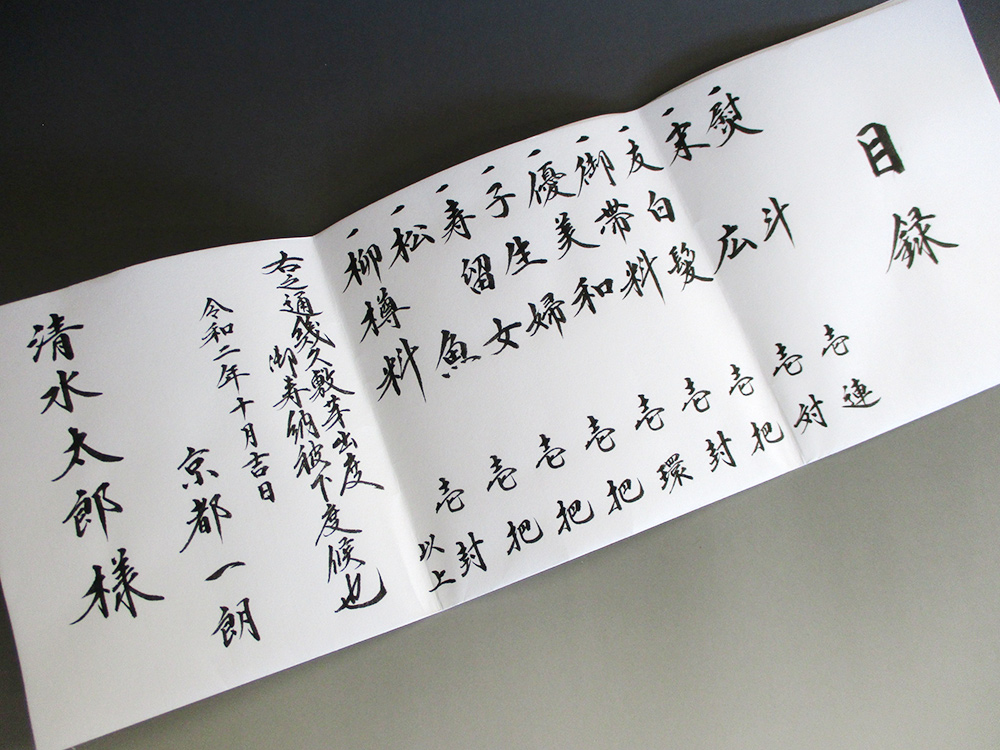 目録
一 熨斗 壱連
一 末広 壱対
一 友白髪 壱把
一 御帯料 壱封
一 優美和 壱環
一 子生婦 壱把
一 寿留女 壱把
一 松魚 壱把
一 柳樽料 壱封
以上
右之通幾久敷芽出度
御寿納被下度候也
令和二年十月吉日
京都一朗
清水太郎様